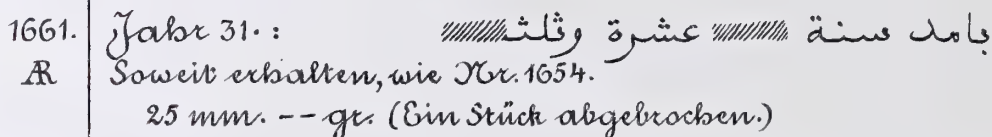 1661. Jahr 31.: بامد سنة عشرة وثلث
Æ Soweit erhalten, wie Nr. 1654.
25 mm. -- gr. (Ein Stück abgebrochen.)